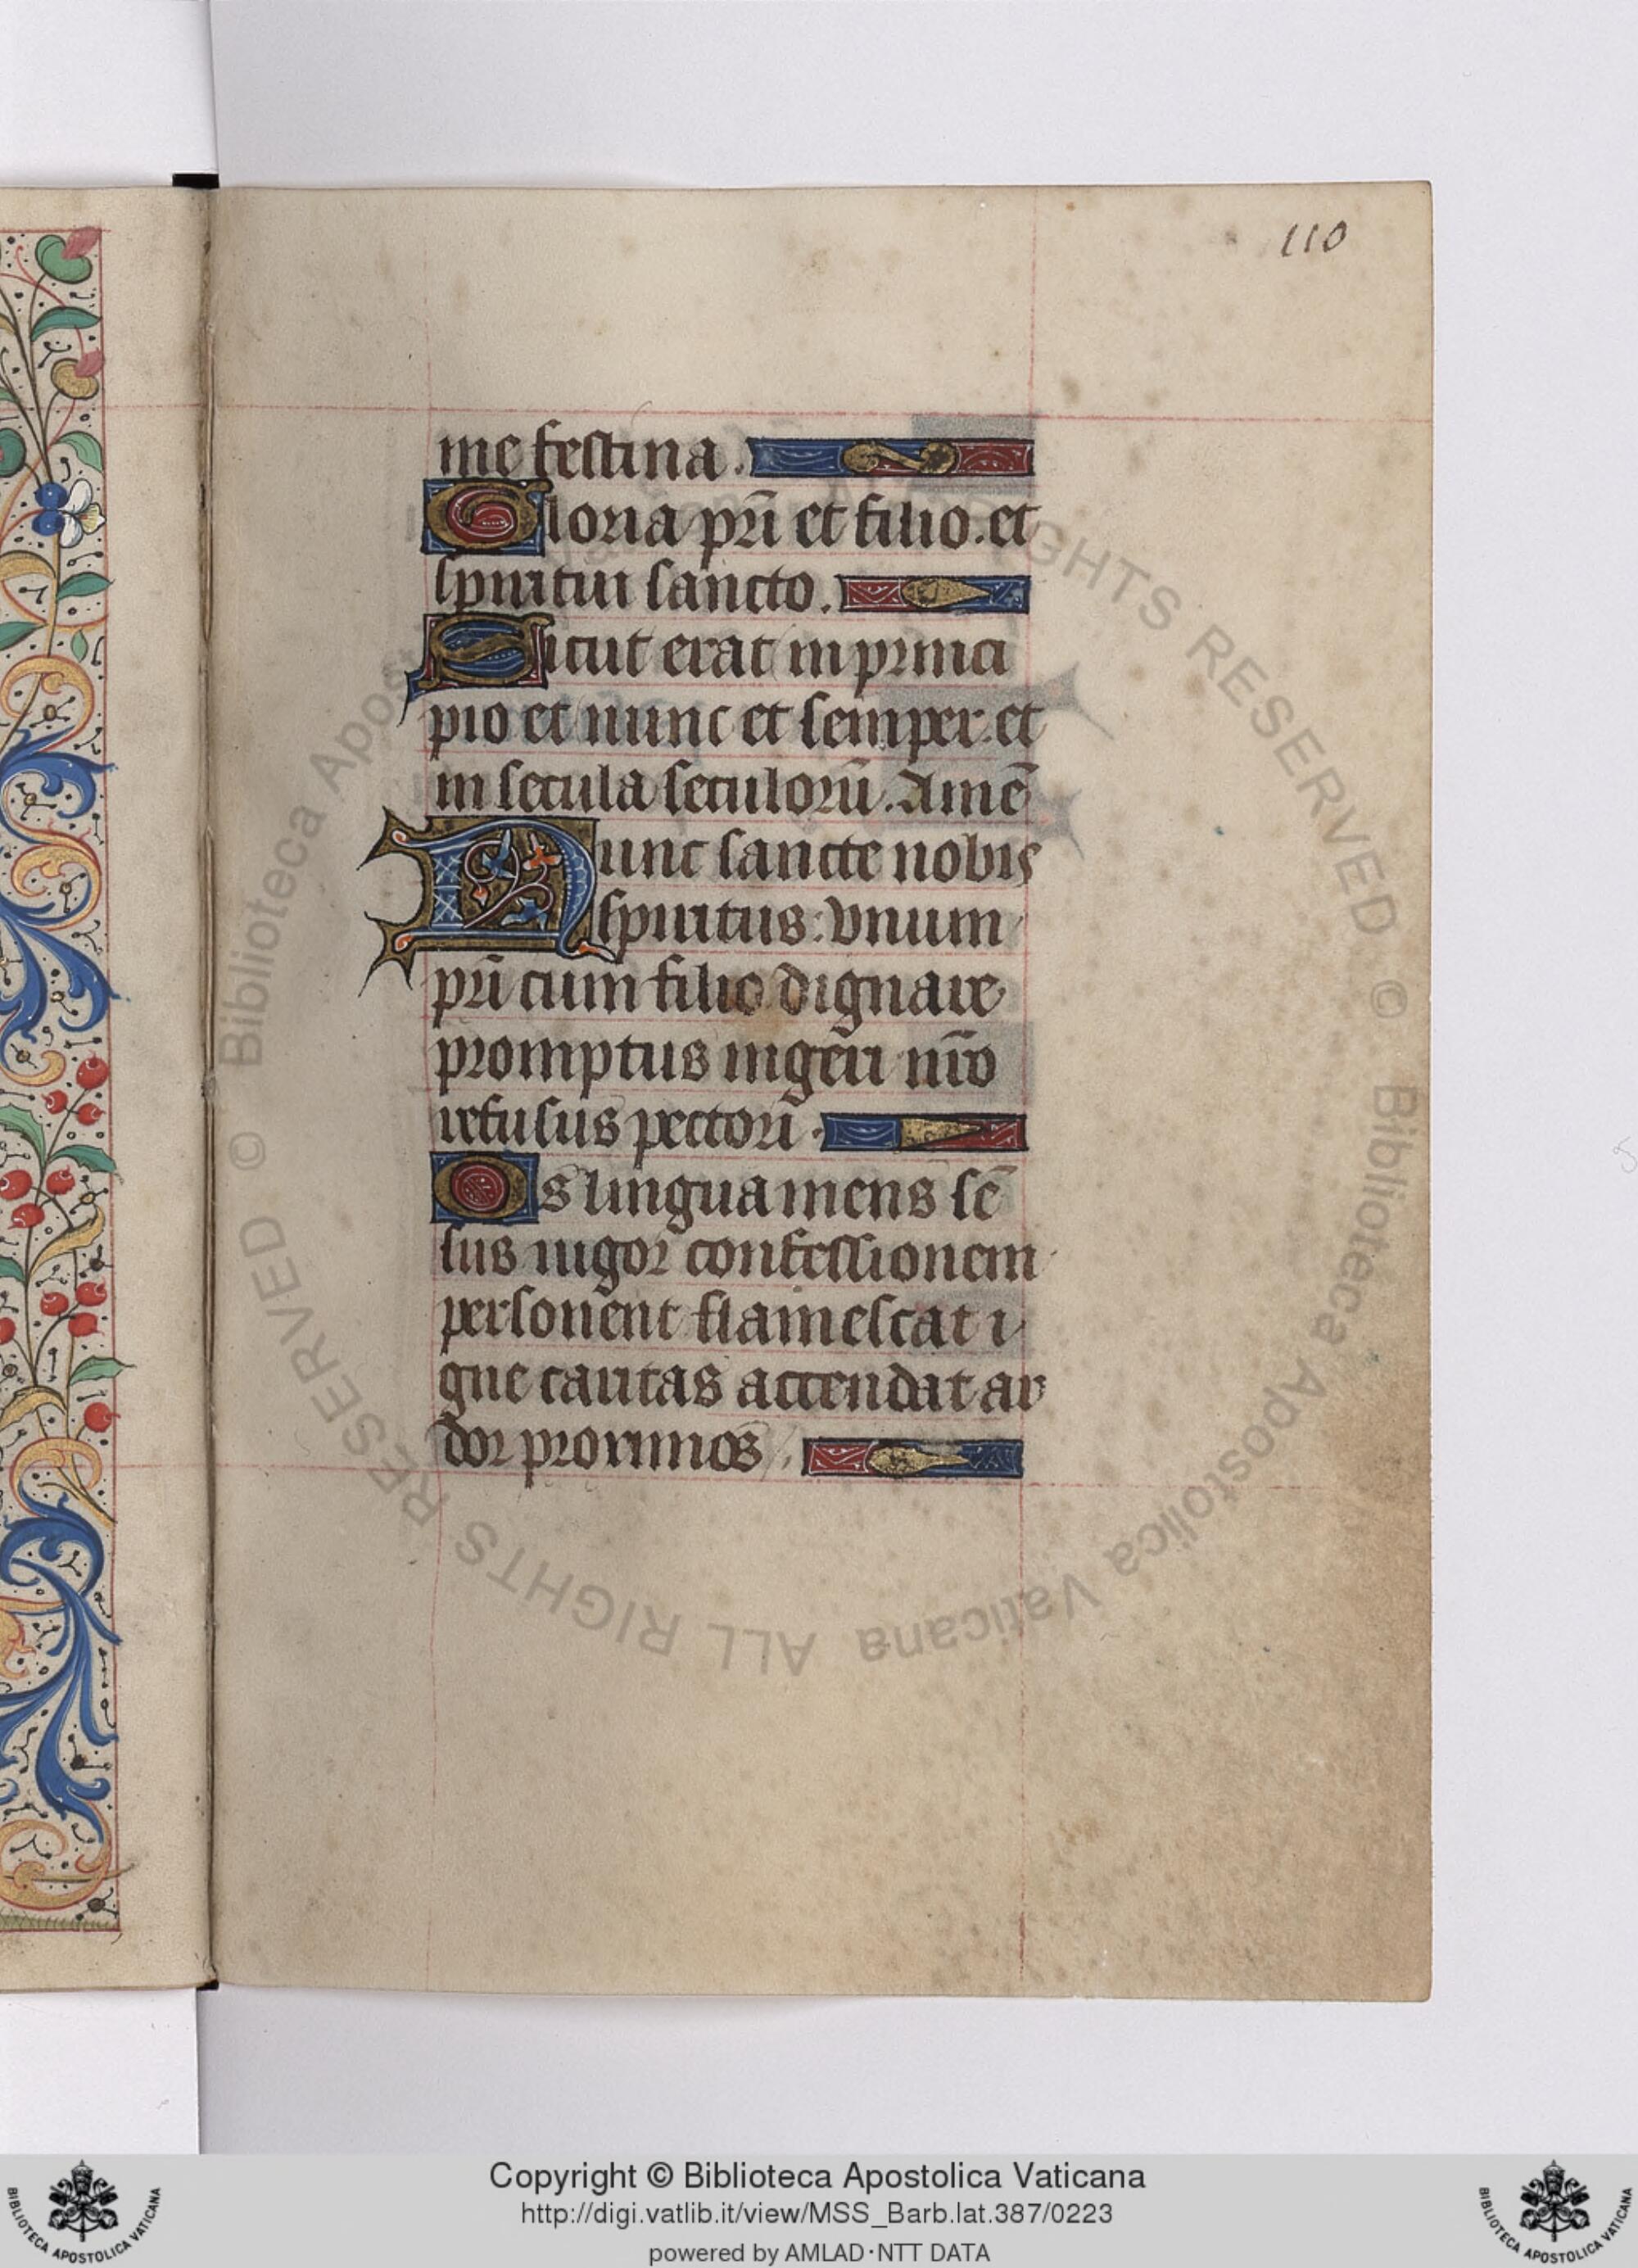 110
me festina.
Gloria pr̄i et filio. et
spiritui sancto.
Sicut erat in princi
pio et nunc et semper. et
in secula seculorū. Amē
Nunc sancte nobis
spiritus: vnum
pr̄i cum filio dignare
promptus ingeri nr̄o
refusus pectori.
Os lingua mens sē
sus uigor confessionem
personent flamescat i
gne caritas accendat ar
dor proximos.
© Biblioteca Apostolica Vaticana ALL RIGHTS RESERVED © Biblioteca Apostolica Vaticana ALL RIGHTS RESERVED
Copyright © Biblioteca Apostolica Vaticana
http://digi.vatlib.it/view/MSS_Barb.lat.387/0223
powered by AMLAD·NTT DATA
BIBLIOTECA APOSTOLICA VATICANA
BIBLIOTECA APOSTOLICA VATICANA